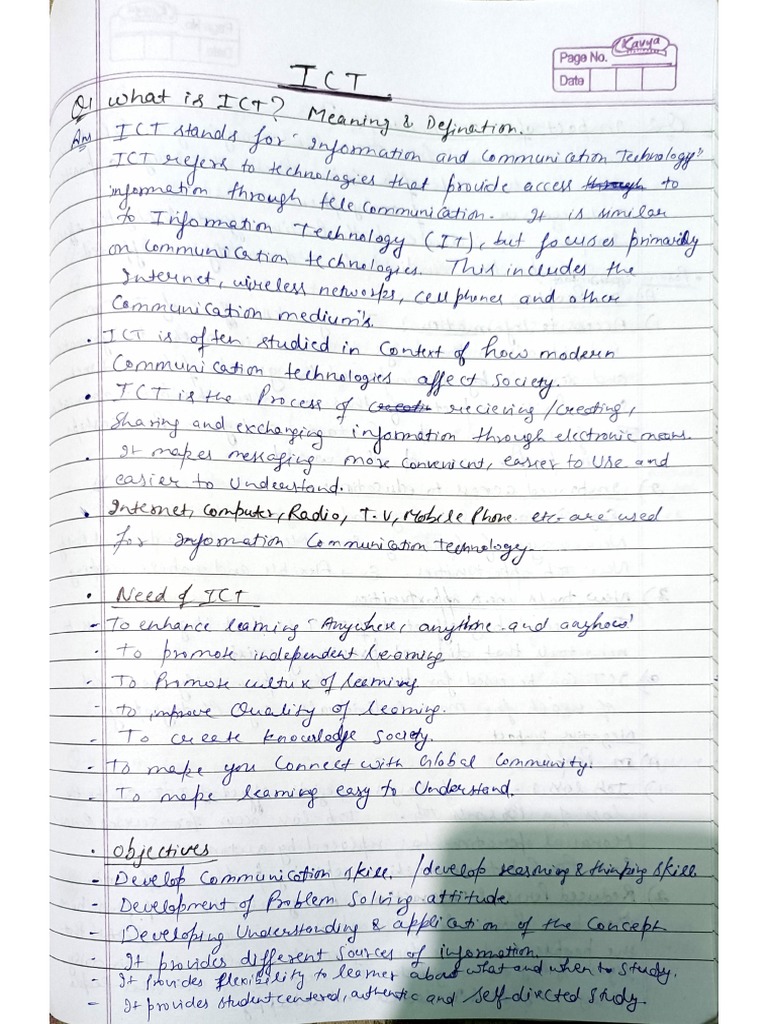 Kavya
Page No.
Date
ICT
Q1 What is ICT? Meaning & Defination.
Ans ICT stands for "Information and Communication Technology"
ICT refers to technologies that provide access through to
information through telecommunication. It is similar
to Information Technology (IT), but focuses primarily
on communication technologies. This includes the
Internet, wireless networks, cellphones and other
Communication medium's.
• ICT is often studied in Context of how modern
Communication technologies affect Society.
• ICT is the Process of recieving/creating,
Sharing and exchanging information through electronic means.
• It makes messaging more convenient, easier to Use and
easier to Understand.
• Internet, Computer, Radio, T.V, Mobile Phone etc. are used
for Information Communication technology.
• Need of ICT
- To enhance learning "Anywhere, anytime and anyhow"
- To promote independent learning
- To Promote cultur of learning
- to improve Quality of learning.
- To create knowledge Society.
- To make you Connect with Global Community.
- To make learning easy to Understand.
• Objectives
- Develop Communication skill. /develop reasoning & thinking skill.
- Development of Problem Solving attitude
- Developing Understanding & application of the Concept
- It provides different Sources of information.
- It provides flexibility to learner about what and when to study.
- It provides student centered, authentic and self-directed study.